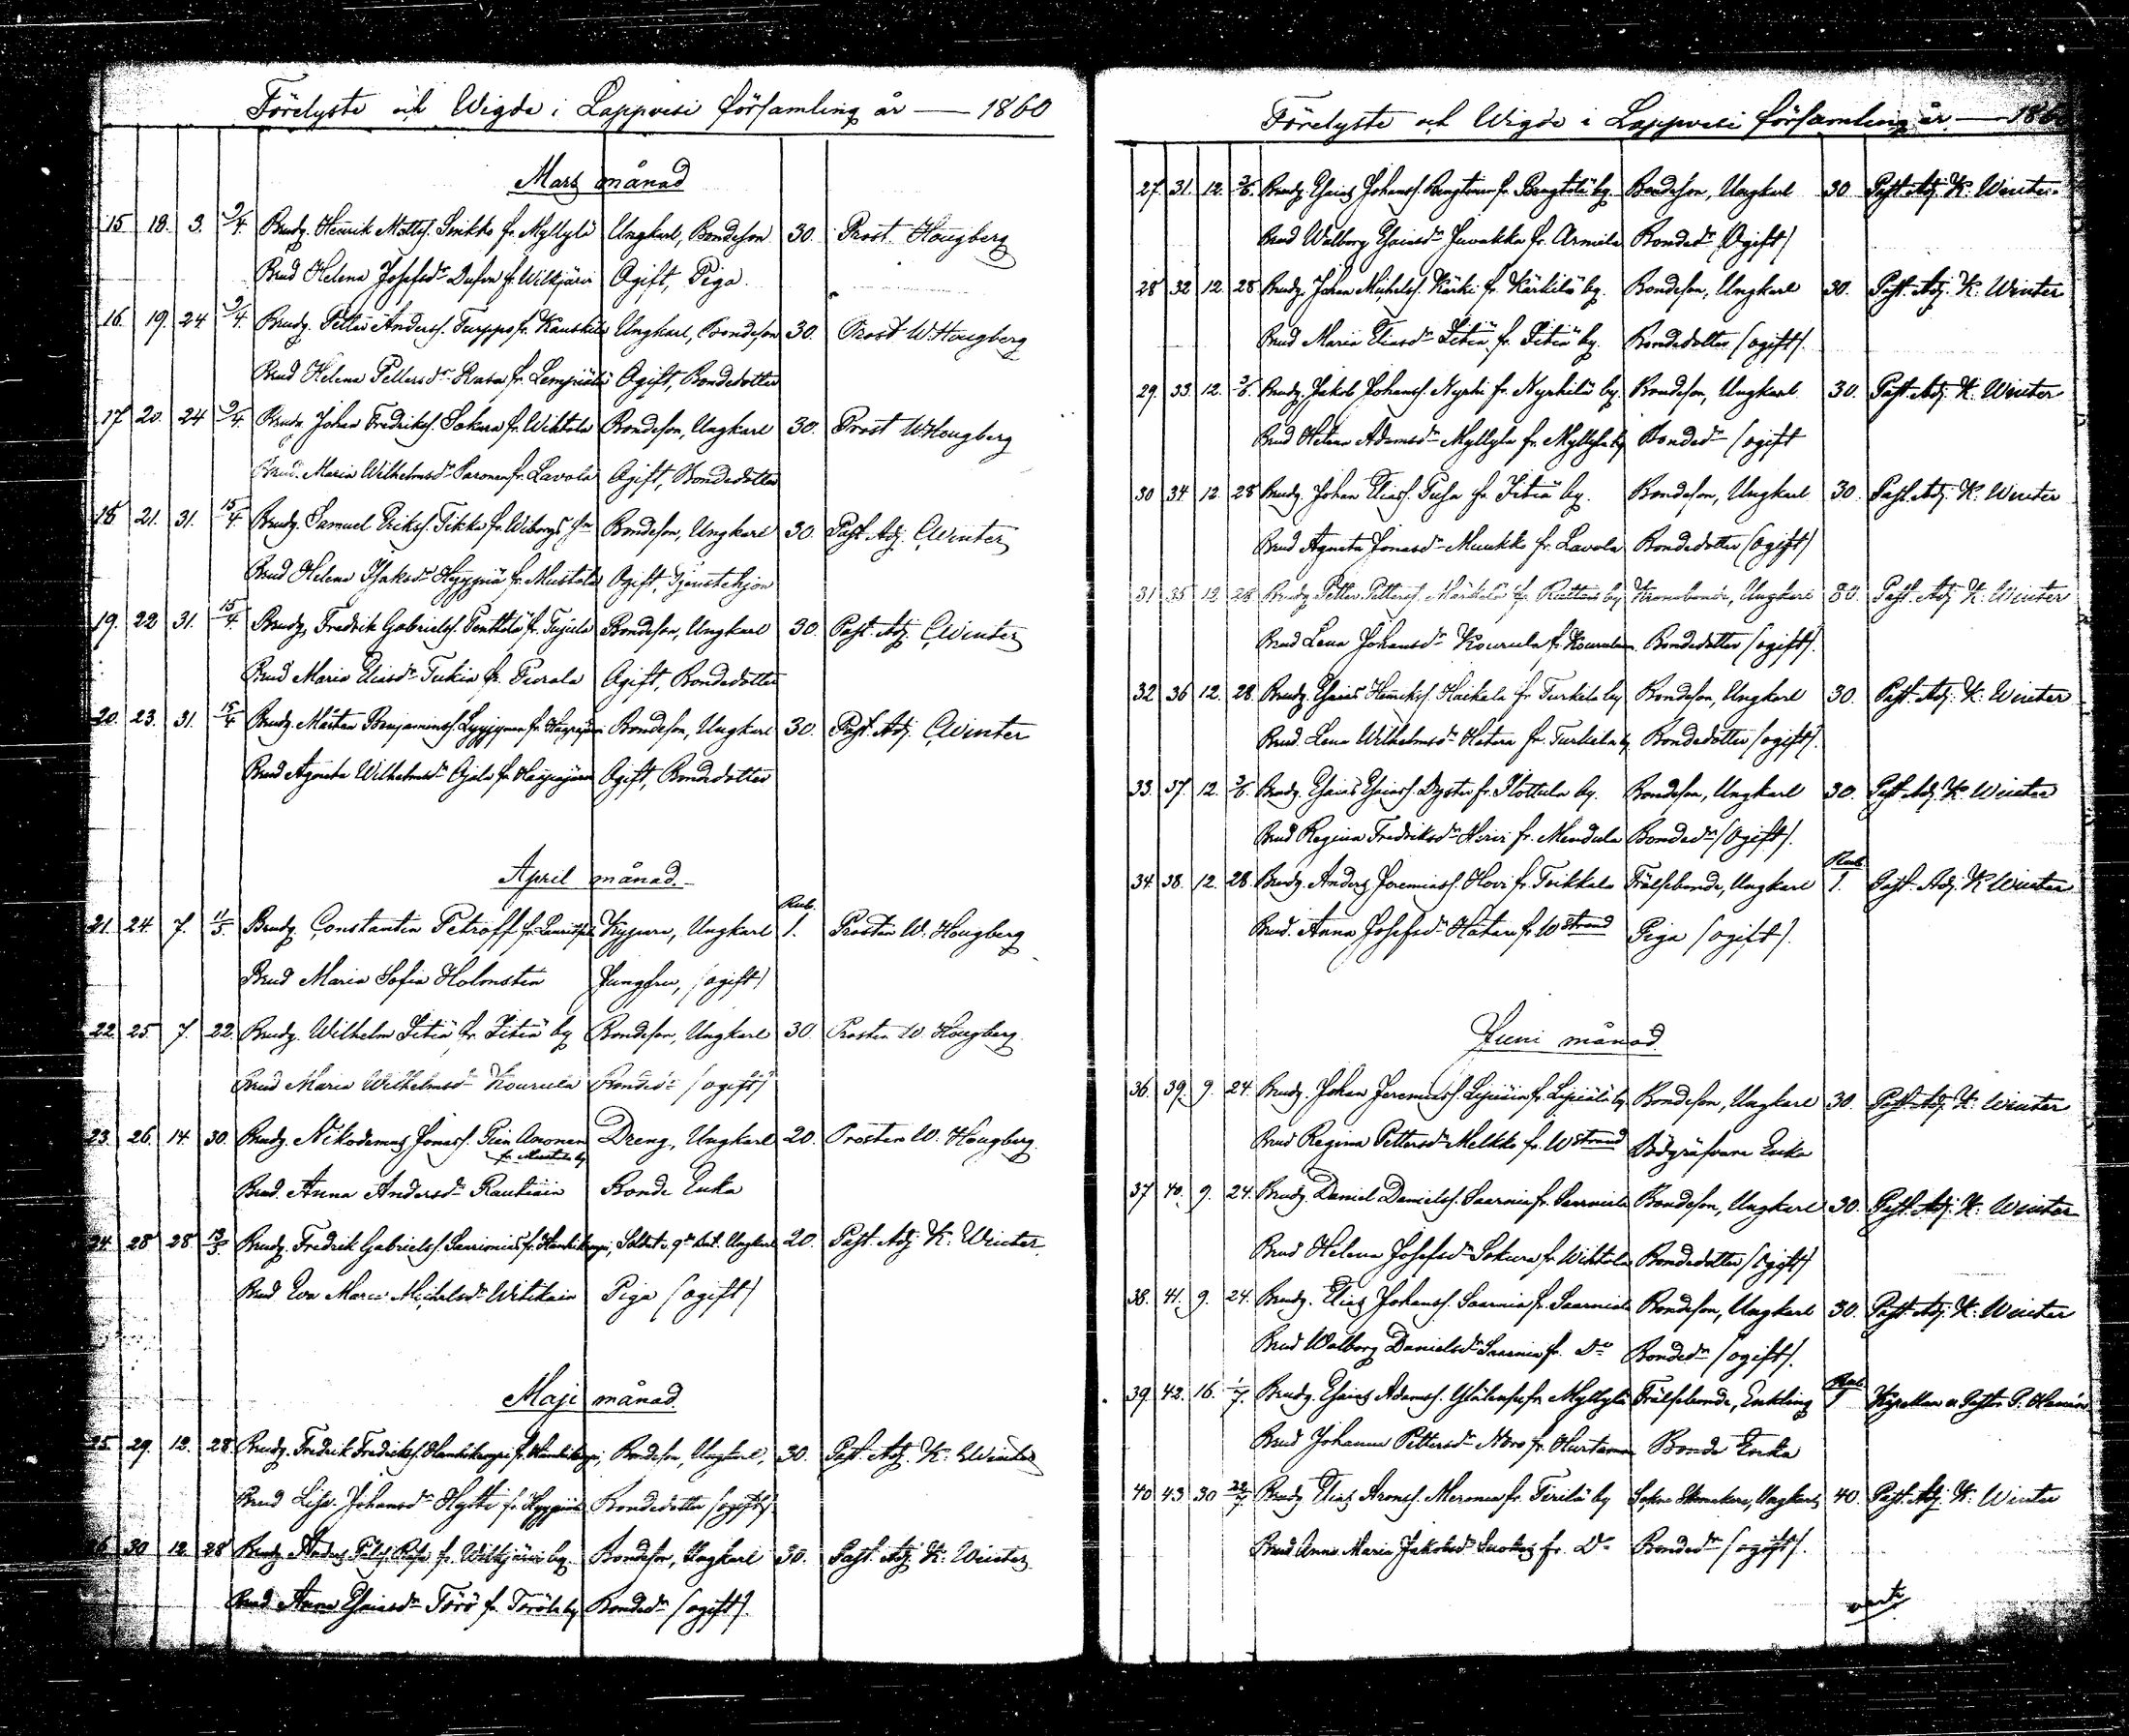 Förelyste och Wigde i Lappvesi församling år — 1860
Mars månad
15 18. 3. 9/4. Brudg. Henrik Mattss. Sinkko fr. Myllylä Ungkarl, Bondeson 30. Prost Hougberg
Brud Helena Josefsdr fr. Wilkjärvi Ogift, Piga.
16. 19. 24 9/4. Brudg. Petter Anderss. Turppo fr. Kauskila Ungkarl, Bondeson 30. Prost W. Hougberg
Brud Helena Pettersdr Rasa fr. Ogift, Bondedotter
17 20. 24 9/4. Brudg. Johan Fredrikss. Sokura fr. Wihtola Bondeson, Ungkarl 30. Prost W Hougberg
Brud. Maria Wilhelmsdr Saxonen fr. Lavola Ogift, Bondedotter
18 21. 31. 15/4. Brudg. Samuel Erikss. Tikka fr. Wiborgs sn Bondeson, Ungkarl 30. Past. Adj. C Winter
Brud Helena Isaksdr Hyyppiä fr. Mustola Ogift, Tjenstehjon
19. 22 31. 15/4. Brudg. Fredrik Gabrielss. Penttilä fr. Tujula Bondeson, Ungkarl 30. Past. Adj. C Winter
Brud Maria Eliasdr Tukia fr. Purala Ogift, Bondedotter
20. 23. 31. 15/4 Brudg. Mårten Benjaminss. fr. Bondeson, Ungkarl 30. Past. Adj. C Winter
Brud Agneta Wilhelmsdr Ojala fr. Ogift, Bondedotter
April månad.
Rub.
21. 24. 7. 11/5. Brudg. Constantin Petroff fr. Kypare, Ungkarl 1. Prosten W. Hougberg
Brud Maria Sofia Holmsten Jungfru, (ogift)
22. 25. 7. 22. Brudg. Wilhelm Zitiä fr. Zitiä by Bondeson, Ungkarl 30 Prosten W. Hougberg
Brud Maria Wilhelmsdr Kourula Bondedr (ogift)
23. 26. 14. 30. Brudg. Nikodemus Jonass. Pien Anonen Dreng, Ungkarl 20. Prosten W. Hougberg
fr. Mustola by
Brud. Anna Andersdr Rautiain Bonde Enka
24. 28 28 13/5. Brudg. Fredrik Gabrielss. fr. Soldat v. 9de Bat. Ungkarl 20. Past. Adj K. Winter.
Brud Eva Maria Michelsdr Witikain Piga (ogift)
Maji månad.
25. 29. 12. 28. Brudg. Fredrik Fredrikss. Hanhikangi fr. Hanhikangi, Bondeson, Ungkarl, 30. Past. Adj. K. Winter
Brud Lisa Johansdr Hytti fr. Bondedotter (ogift)
26. 30 12. 28 Brudg. Anders fr. Wilkjärvi by. Bondeson, Ungkarl 30. Past. Adj K. Winter
Brud Anna Esaiasdr Törö fr. Törölä by Bondedr (ogift).
Förelyste och Wigde i Lappvesi församling år — 186
27. 31. 12. 3/6. Brudg. Esaias Johanss. Bengtonen fr. Bengtilä by. Bondeson, Ungkarl 30. Past. Adj. K. Winter
Brud Walborg Esaiasdr Juvakka fr. Armila Bondedr (Ogift)
28 32 12 28 Brudg. Johan Michelss. Kärki fr. Kärkilä by. Bondeson, Ungkarl 30. Past. Adj. K. Winter
Brud Maria Eliasdr Zitiä fr. Zitiä by. Bondedotter (ogift).
29. 33. 12. 3/6. Brudg. Jakob Johanss. Nyrhi fr. Nyrhilä by. Bondeson, Ungkarl 30. Past. Adj. K. Winter
Brud Helena Adamsdr Myllylä fr. Myllylä by Bondedr (ogift
30 34 12. 28 Brudg. Johan Eliass. Pusa fr. Zitiä by. Bondeson, Ungkarl 30. Past. Adj. K. Winter
Brud Agneta Jonasdr Muukko fr. Lavola Bondedotter (ogift)
31. 35 12 28 Brudg. Petter Petterss. Kronobonde, Ungkarl 30. Past. Adj K. Winter
Brud Lena Johansdr Kourula fr. Bondedotter (ogift).
32 36 12. 28. Brudg. Esaias Henrikss. Haikala fr. Turkila by Bondeson, Ungkarl 30. Past. Adj. K. Winter
Brud. Lena Wilhelmsdr Hatara fr. Turkila by Bondedotter (ogift).
33. 37. 12. 3/6. Brudg. Esaias Esaiass. Dyster fr. Ilottula by. Bondeson, Ungkarl 30. Past. Adj. K. Winter
Brud Regina Fredriksdr Hirvi fr. Mendula Bondedr (Ogift).
Rub.
34. 38. 12. 28. Brudg. Anders Jeremiass. Hovi fr. Toikkala Frälsebonde, Ungkarl 1. Past. Adj. K Winter
Brud. Anna Josefsdr Hatara fr. Wstrand Piga (ogift).
Juni månad.
36. 39. 9. 24. Brudg. Johan Jeremiass. Bondeson, Ungkarl 30. Past. Adj. K. Winter
Brud Regina Pettersdr Melkko fr. Wstrand Enka
37 40. 9. 24. Brudg. Daniel Danielss. Saarnia fr. Saarniala Bondeson, Ungkarl 30. Past. Adj. K. Winter
Brud Helena Josefsdr Sokura fr. Wihtola Bondedotter (Ogift)
38. 41. 9. 24. Brudg. Elias Johanss. Saarnia fr. Saarniala Bondeson, Ungkarl 30. Past. Adj. K. Winter
Brud Walborg Danielsdr Saarnia fr. Do Bondedr (ogift).
Rub.
39. 42. 16. 1/7. Brudg. Esaias Adamss. fr. Myllylä Frälsebonde, Enkling 1
Brud Johanna Pettersdr Noro fr. Bonde Enka
40 43 30 22/7 Brudg. Elias Aronss. Meronen fr. Tirilä by Sokne Skomakare, Ungkarl 40. Past. Adj. K. Winter
Brud Anna Maria Jakobsdr Suokas fr. Do Bondedr (ogift).
verte